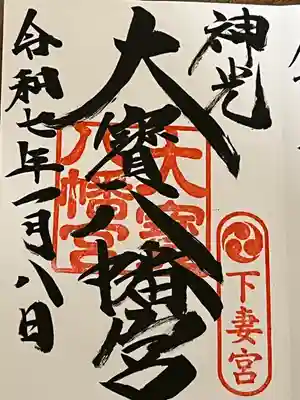 神光
大寳八幡宮
令和七年一月八日
大寳
八幡宮
下妻宮